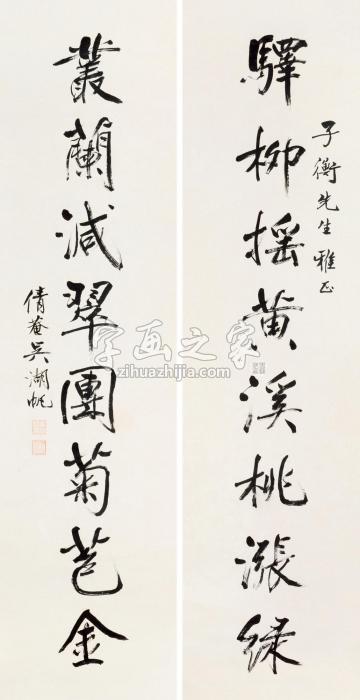 子衡先生雅正
驛柳搖黄溪桃漲綠
叢蘭減翠團菊苞金
倩菴吳湖帆
字画之家
zihuazhijia.com